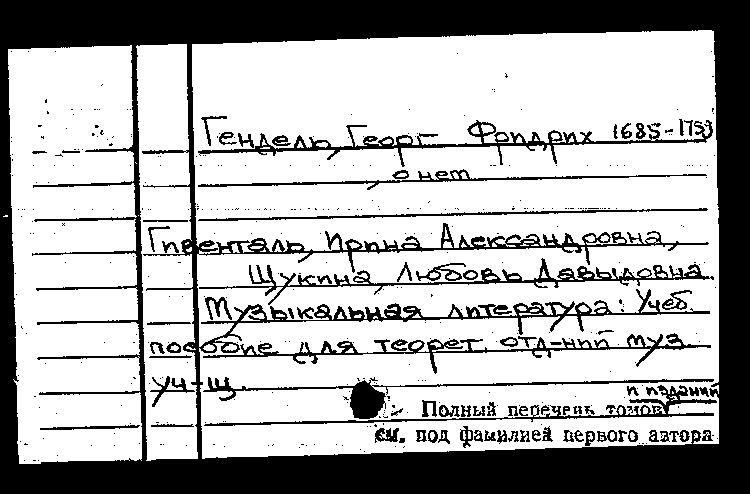 Гендель, Георг Фридрих 1685-1753
, о нем
Гивенталь, Ирина Александровна,
Щукина, Любовь Давыдовна.
Музыкальная литература: Учеб.
пособие для теорет. отд-ний муз.
уч-щ.
и изданий
Полный перечень томов
см. под фамилией первого автора